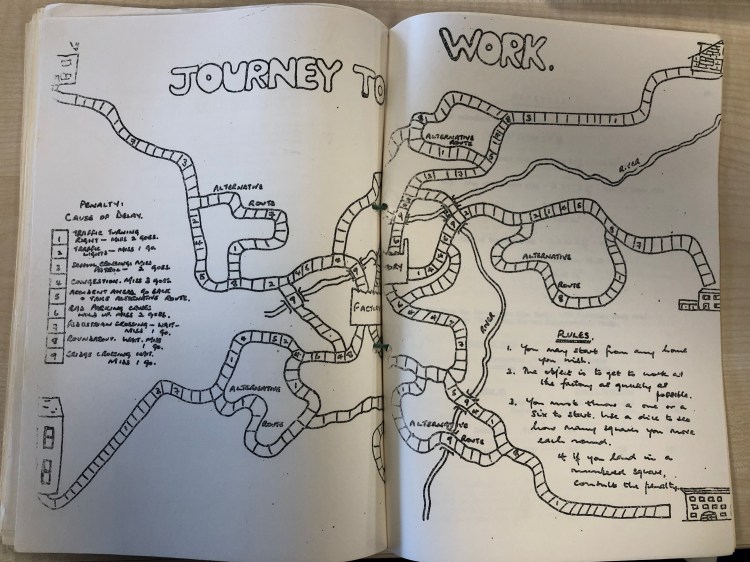 JOURNEY TO
WORK.
PENALTY:
CAUSE OF DELAY.
1 TRAFFIC TURNING
RIGHT - MISS 2 GOES.
2 TRAFFIC
LIGHTS - MISS 1 GO.
3 SCHOOL CROSSING MISS
PATROL - 2 GOES.
4 CONGESTION. MISS 3 GOES
5 ACCIDENT AHEAD GO BACK
+ TAKE ALTERNATIVE ROUTE.
6 BAD PARKING CONES
HOLD UP MISS 2 GOES.
7 PEDESTRIAN CROSSING - WAIT -
MISS 1 GO.
8 ROUNDABOUT. WAIT. MISS
1 GO.
9 BRIDGE CROSSING WAIT.
MISS 1 GO.
ALTERNATIVE
ROUTE
ALTERNATIVE
ROUTE
FACTORY
ALTERNATIVE
ROUTE
RIVER
ALTERNATIVE
ROUTE
RIVER
ALTERNATIVE
ROUTE
RULES
1. You may start from any home
you wish.
2. The object is to get to work at
the factory as quickly as
possible.
3. You must throw a one or a
six to start. Use a dice to see
how many squares you move
each round.
If you land in a
numbered square,
consult the penalty